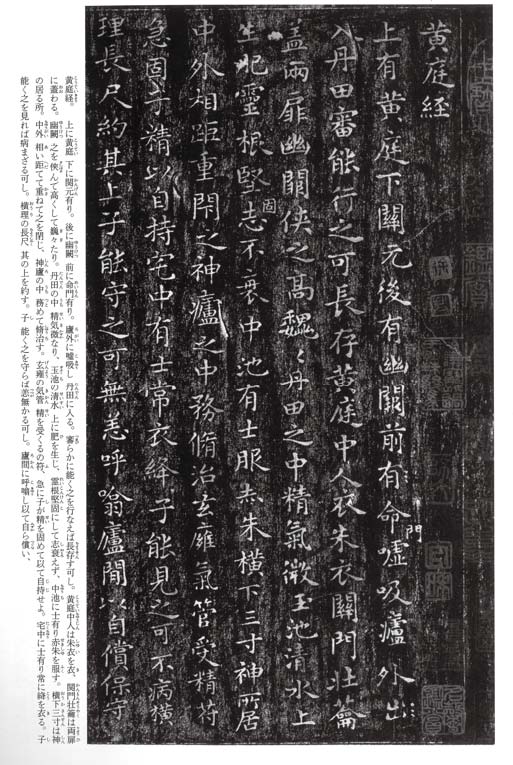 黄庭経
上有黄庭下關元後有幽闕前有命門噓吸廬外出
入丹田審能行之可長存黄庭中人衣朱衣關門壯籥
盖兩扉幽闕侠之髙巍〻丹田之中精氣微玉池清水上
生肥靈根堅固志不衰中池有士服赤朱橫下三寸神所居
中外相距重閇之神廬之中務脩治玄廱氣管受精苻
急固子精以自持宅中有士常衣絳子能見之可不病橫
理長尺約其上子能守之可無恙呼噏廬閒以自償保守
黄庭経。　上に黄庭 下に関元有り。後に幽闕 前に命門有り。廬外に噓吸し 丹田に入る。審らかに能く之を行なえば長存す可し。黄庭中人は朱衣を衣、関門壮籥は両扉
に蓋わる。幽闕 之を侠んで高くして巍々たり。丹田の中 精気微なり、玉池の清水 上に肥を生し、霊根堅固にして志衰えず、中池に士有り赤朱を服す。横下三寸は神
の居る所。中外 相い距てて重ねて之を閉じ、神廬の中 務めて脩治す。玄廱の気管 精を受くるの符、急に子が精を固めて以て自持せよ。宅中に士有り常に絳を衣る。子
能く之を見れば病まざる可し。横理の長尺 其の上を約す。子 能く之を守らば恙無かる可し。廬間に呼噏し以て自ら償い、